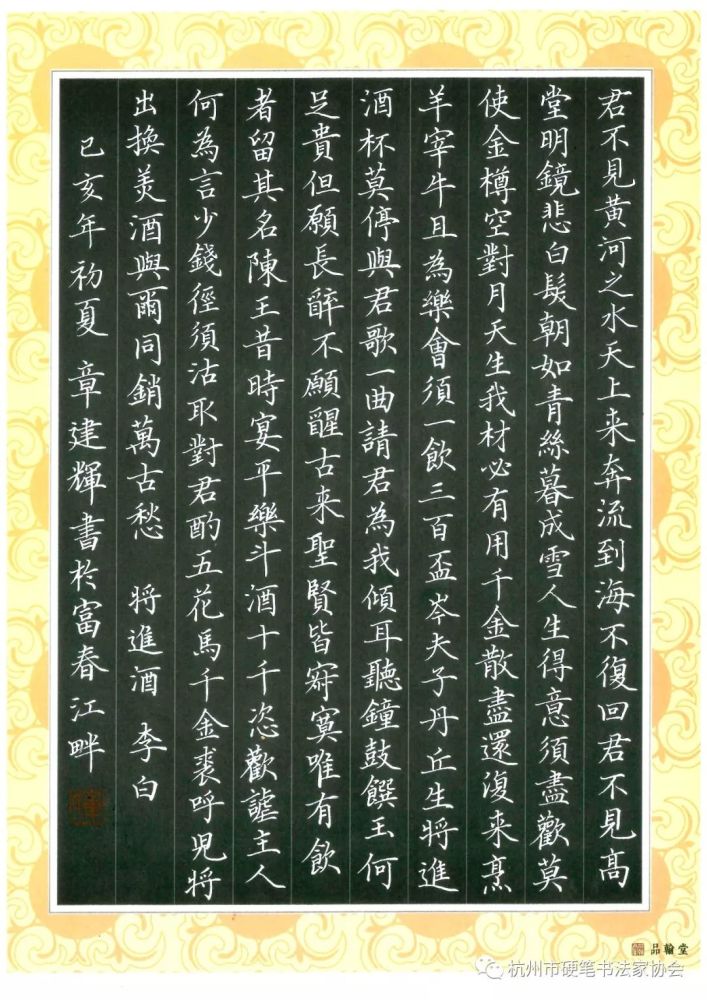 君不見黃河之水天上来奔流到海不復回君不見高
堂明鏡悲白髮朝如青絲暮成雪人生得意須盡歡莫
使金樽空對月天生我材必有用千金散盡還復来烹
羊宰牛且為樂會須一飲三百盃岑夫子丹丘生將進
酒杯莫停與君歌一曲請君為我傾耳聽鐘鼓饌玉何
足貴但願長醉不願醒古来聖賢皆寂寞唯有飲
者留其名陳王昔時宴平樂斗酒十千恣歡謔主人
何為言少錢徑須沽取對君酌五花馬千金裘呼児將
出換美酒與爾同銷萬古愁 將進酒 李白
己亥年初夏 章建輝書於富春江畔
品翰堂
杭州市硬笔书法家协会